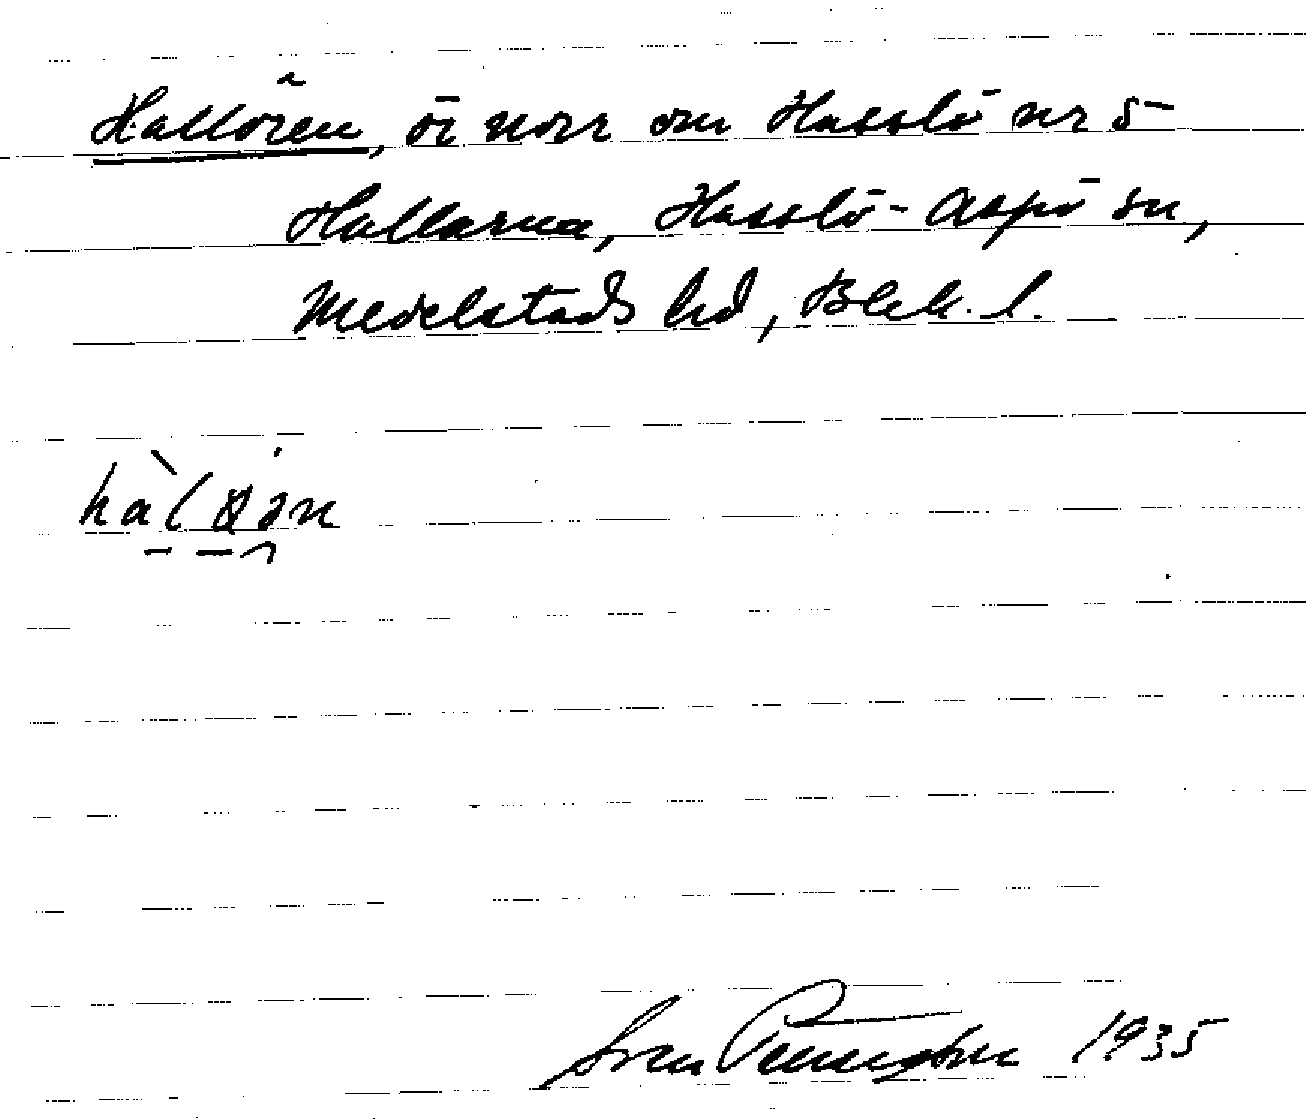 Hallören, ö norr om Hasslö nr 5
Hallarna, Hasslö-Aspö sn,
Medelstads hd, Blek. l.
Sven 1935